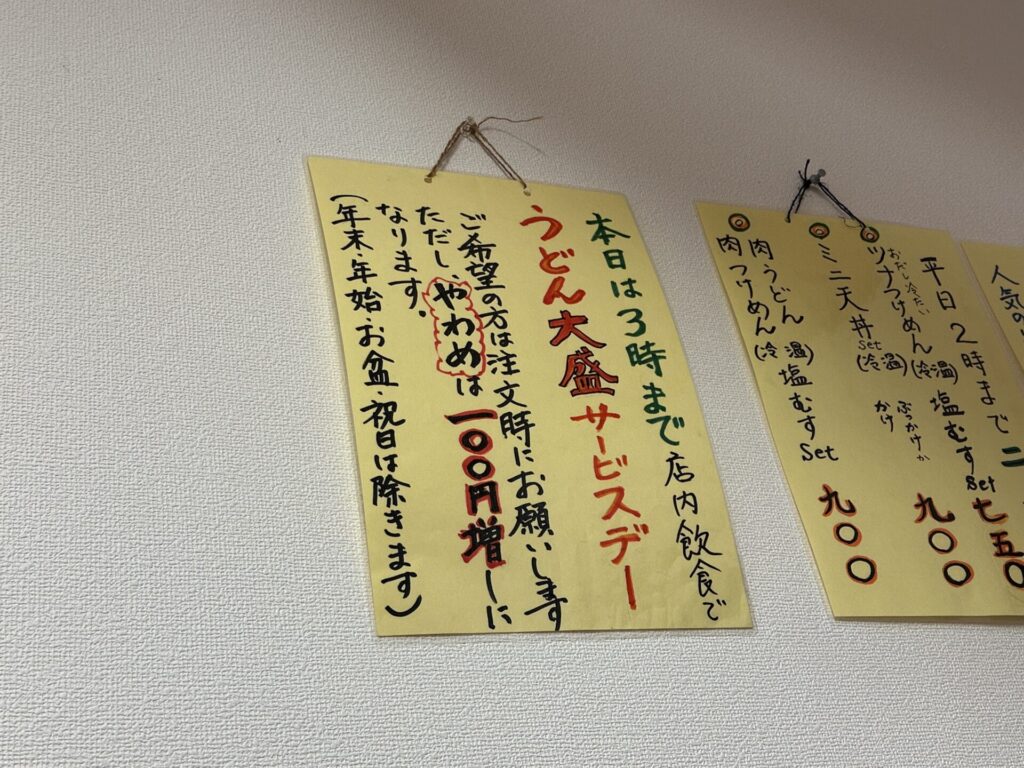 本日は3時まで店内飲食で
うどん大盛サービスデー
ご希望の方は注文時にお願いします
ただし、やわめは一〇〇円増しに
なります。
(年末・年始・お盆・祝日は除きます)
人気の
平日2時まで
ツナつけめん(冷温)塩むすSet 七五〇
おだし冷たい
ミニ天丼Set(冷温) 九〇〇
ぶっかけか
かけ
肉うどん
肉つけめん(冷温)塩むすSet 九〇〇